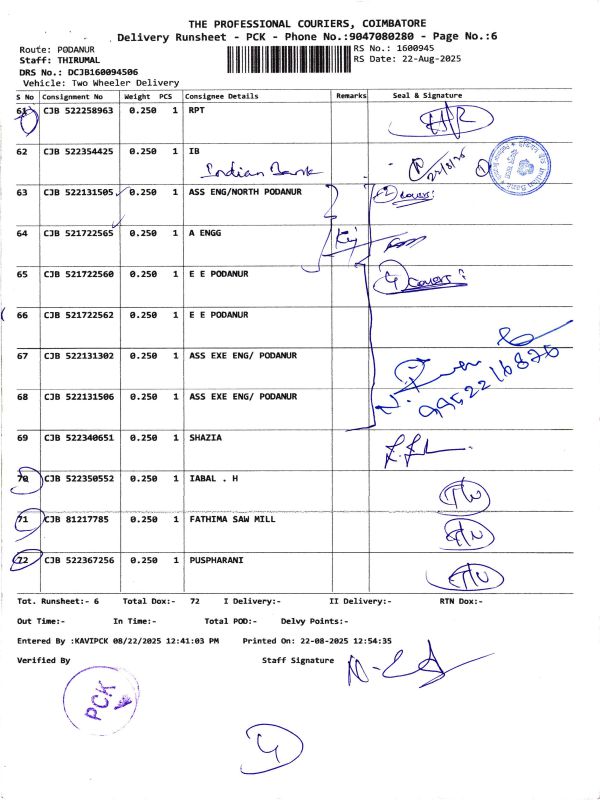 THE PROFESSIONAL COURIERS, COIMBATORE
Delivery Runsheet - PCK - Phone No.:9047080280 - Page No.:6
Route: PODANUR RS No.: 1600945
Staff: THIRUMAL RS Date: 22-Aug-2025
DRS No.: DCJB160094506
Vehicle: Two Wheeler Delivery
S No Consignment No Weight PCS Consignee Details Remarks Seal & Signature
61 CJB 522258963 0.250 1 RPT
62 CJB 522354425 0.250 1 IB
Indian Bank
63 CJB 522131505 0.250 1 ASS ENG/NORTH PODANUR 2 covers:
64 CJB 521722565 0.250 1 A ENGG
65 CJB 521722560 0.250 1 E E PODANUR 4 covers:
66 CJB 521722562 0.250 1 E E PODANUR
67 CJB 522131302 0.250 1 ASS EXE ENG/ PODANUR
68 CJB 522131506 0.250 1 ASS EXE ENG/ PODANUR
69 CJB 522340651 0.250 1 SHAZIA
70 CJB 522350552 0.250 1 IABAL . H
71 CJB 81217785 0.250 1 FATHIMA SAW MILL
72 CJB 522367256 0.250 1 PUSPHARANI
Tot. Runsheet:- 6 Total Dox:- 72 I Delivery:- II Delivery:- RTN Dox:-
Out Time:- In Time:- Total POD:- Delvy Points:-
Entered By :KAVIPCK 08/22/2025 12:41:03 PM Printed On: 22-08-2025 12:54:35
Verified By Staff Signature
PCK
4